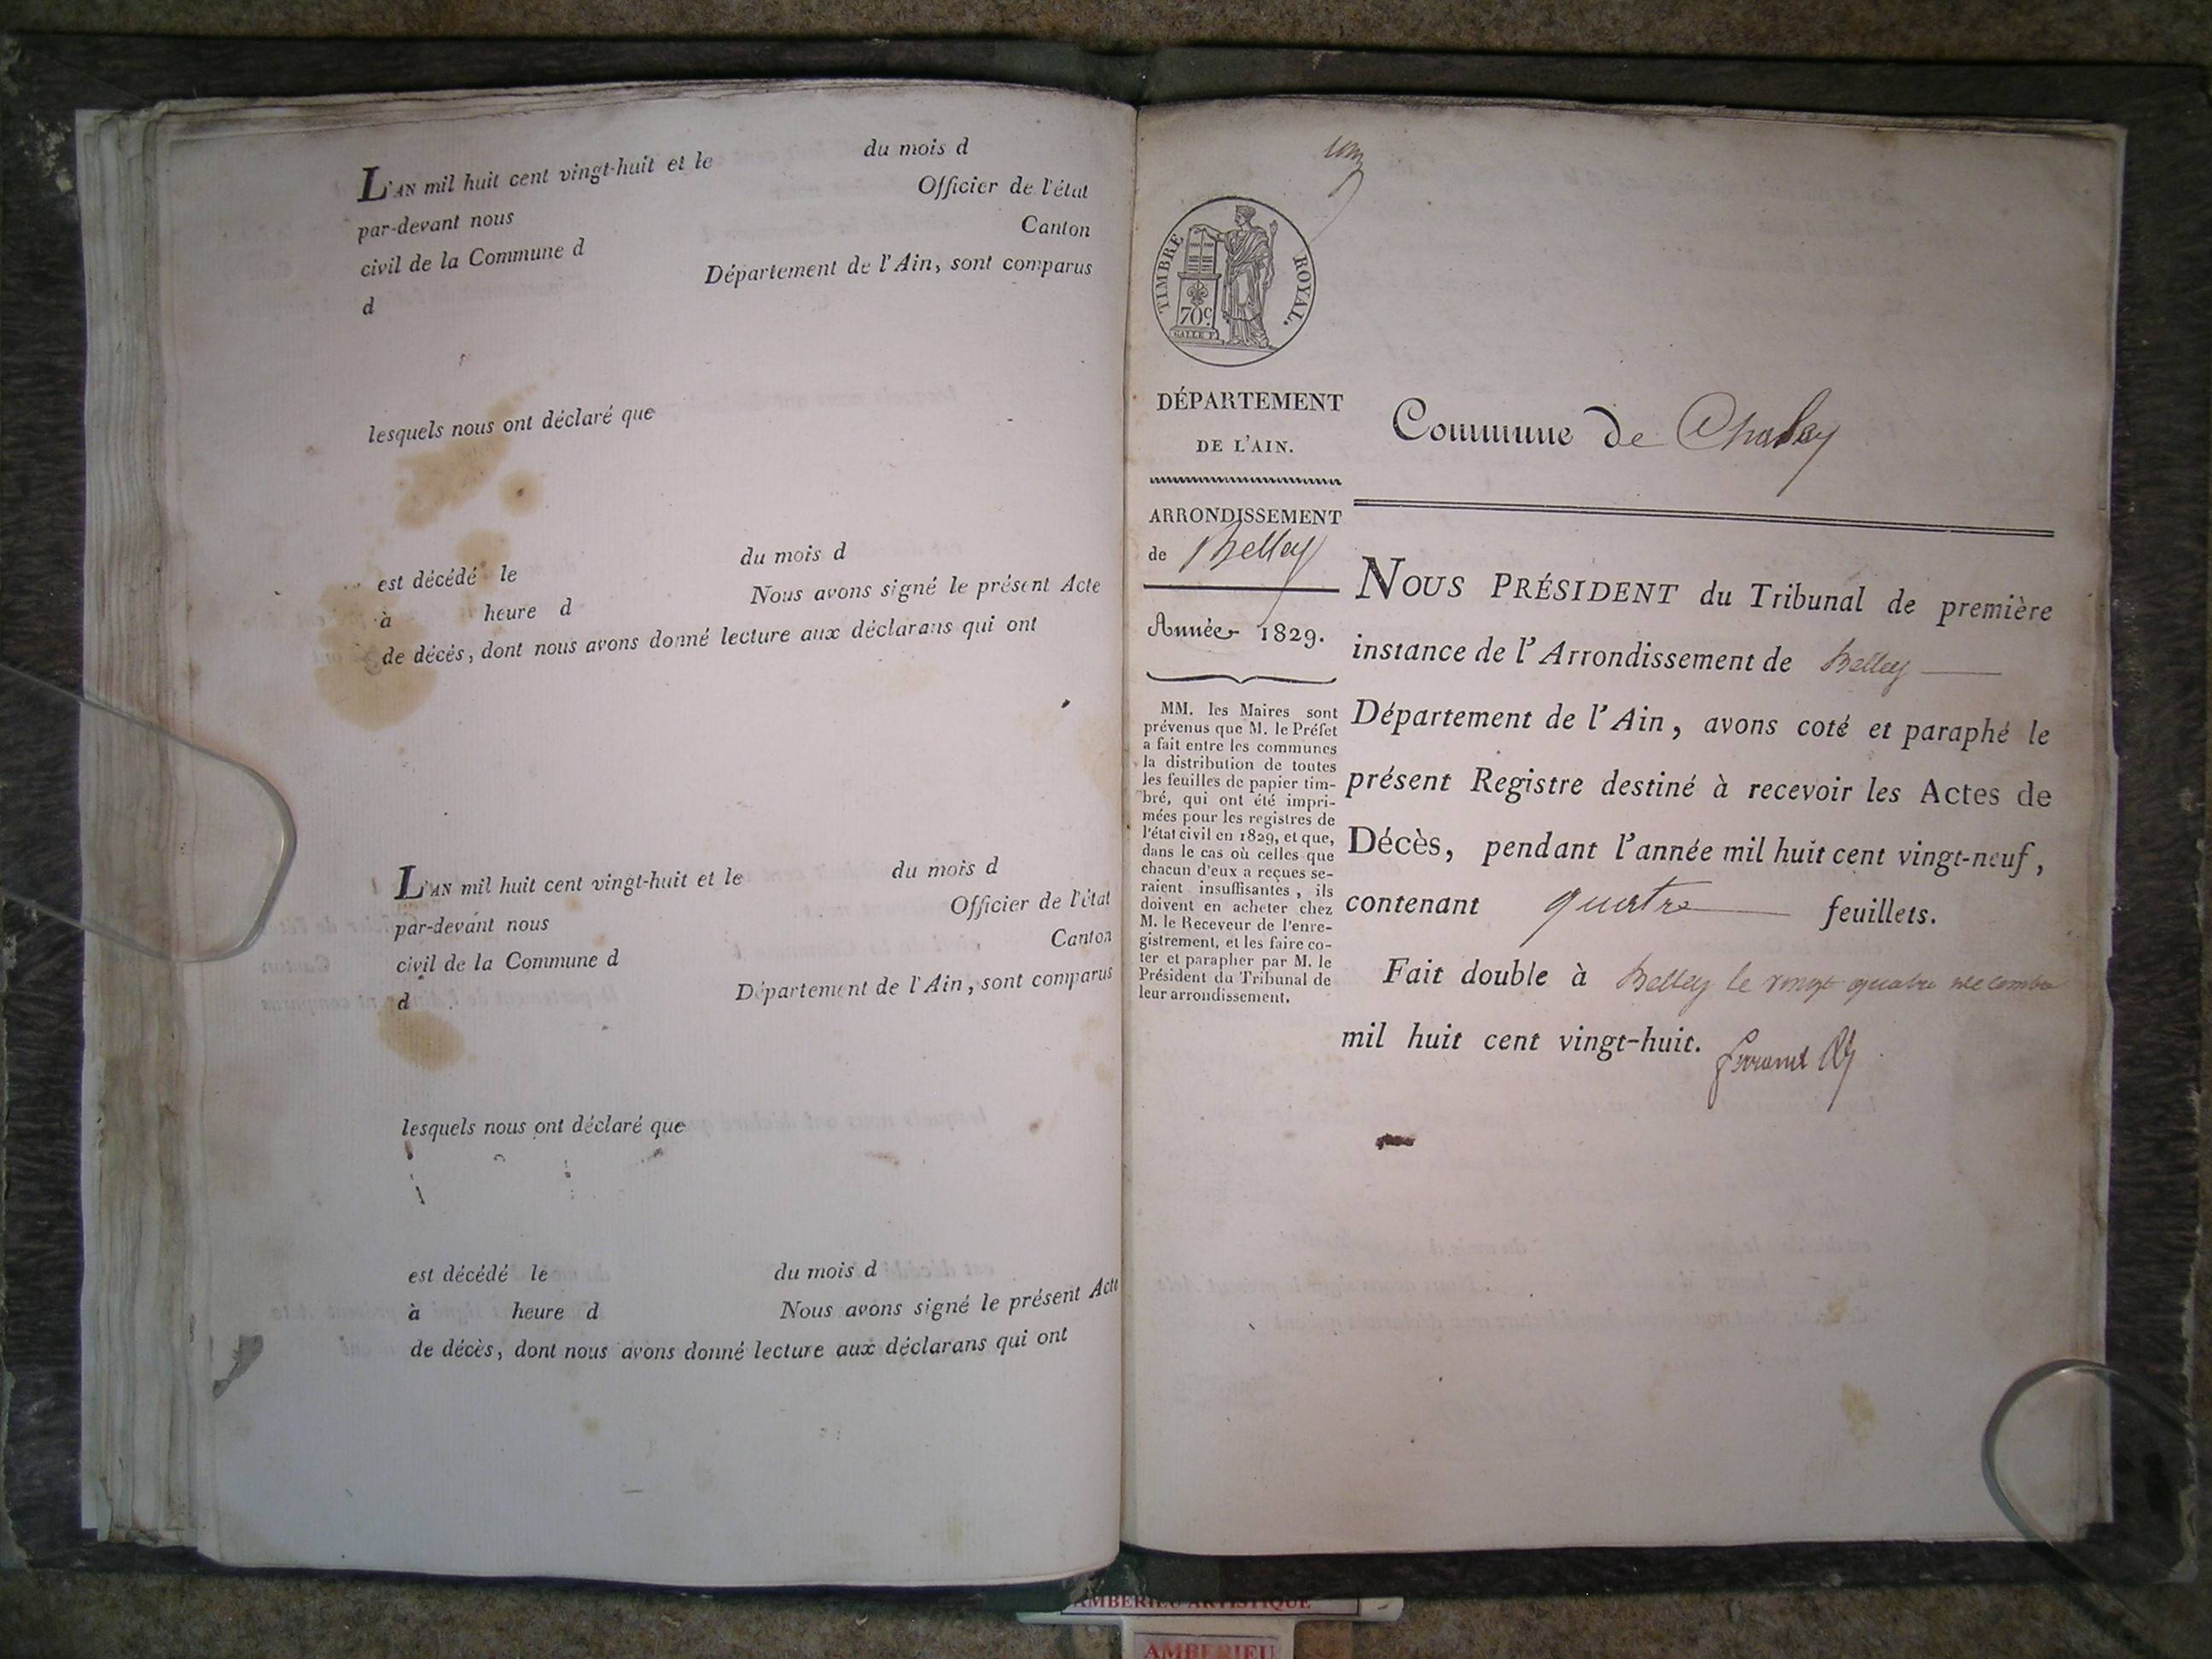 L'AN mil huit cent vingt-huit et le du mois d
par-devant nous Officier de l'état
civil de la Commune d Canton
d Département de l'Ain, sont comparus
lesquels nous ont déclaré que
est décédé le du mois d
à heure d Nous avons signé le présent Acte
de décès, dont nous avons donné lecture aux déclarans qui ont
L'AN mil huit cent vingt-huit et le du mois d
par-devant nous Officier de l'état
civil de la Commune d Canton
d Département de l'Ain, sont comparus
lesquels nous ont déclaré que
est décédé le du mois d
à heure d Nous avons signé le présent Acte
de décès, dont nous avons donné lecture aux déclarans qui ont
TIMBRE ROYAL.
70c.
GALLE F.
DÉPARTEMENT
DE L'AIN.
ARRONDISSEMENT
de Belley
Année 1829.
MM. les Maires sont
prévenus que M. le Préfet
a fait entre les communes
la distribution de toutes
les feuilles de papier tim-
bré, qui ont été impri-
mées pour les registres de
l'état civil en 1829, et que,
dans le cas où celles que
chacun d'eux a reçues se-
raient insuffisantes, ils
doivent en acheter chez
M. le Receveur de l'enre-
gistrement, et les faire co-
ter et parapher par M. le
Président du Tribunal de
leur arrondissement.
Commune de Chaley
NOUS PRÉSIDENT du Tribunal de première
instance de l'Arrondissement de Belley
Département de l'Ain, avons coté et paraphé le
présent Registre destiné à recevoir les Actes de
Décès, pendant l'année mil huit cent vingt-neuf,
contenant quatre feuillets.
Fait double à Belley le vingt quatre decembre
mil huit cent vingt-huit.
AMBERIEU ARTISTIQUE
AMBERIEU